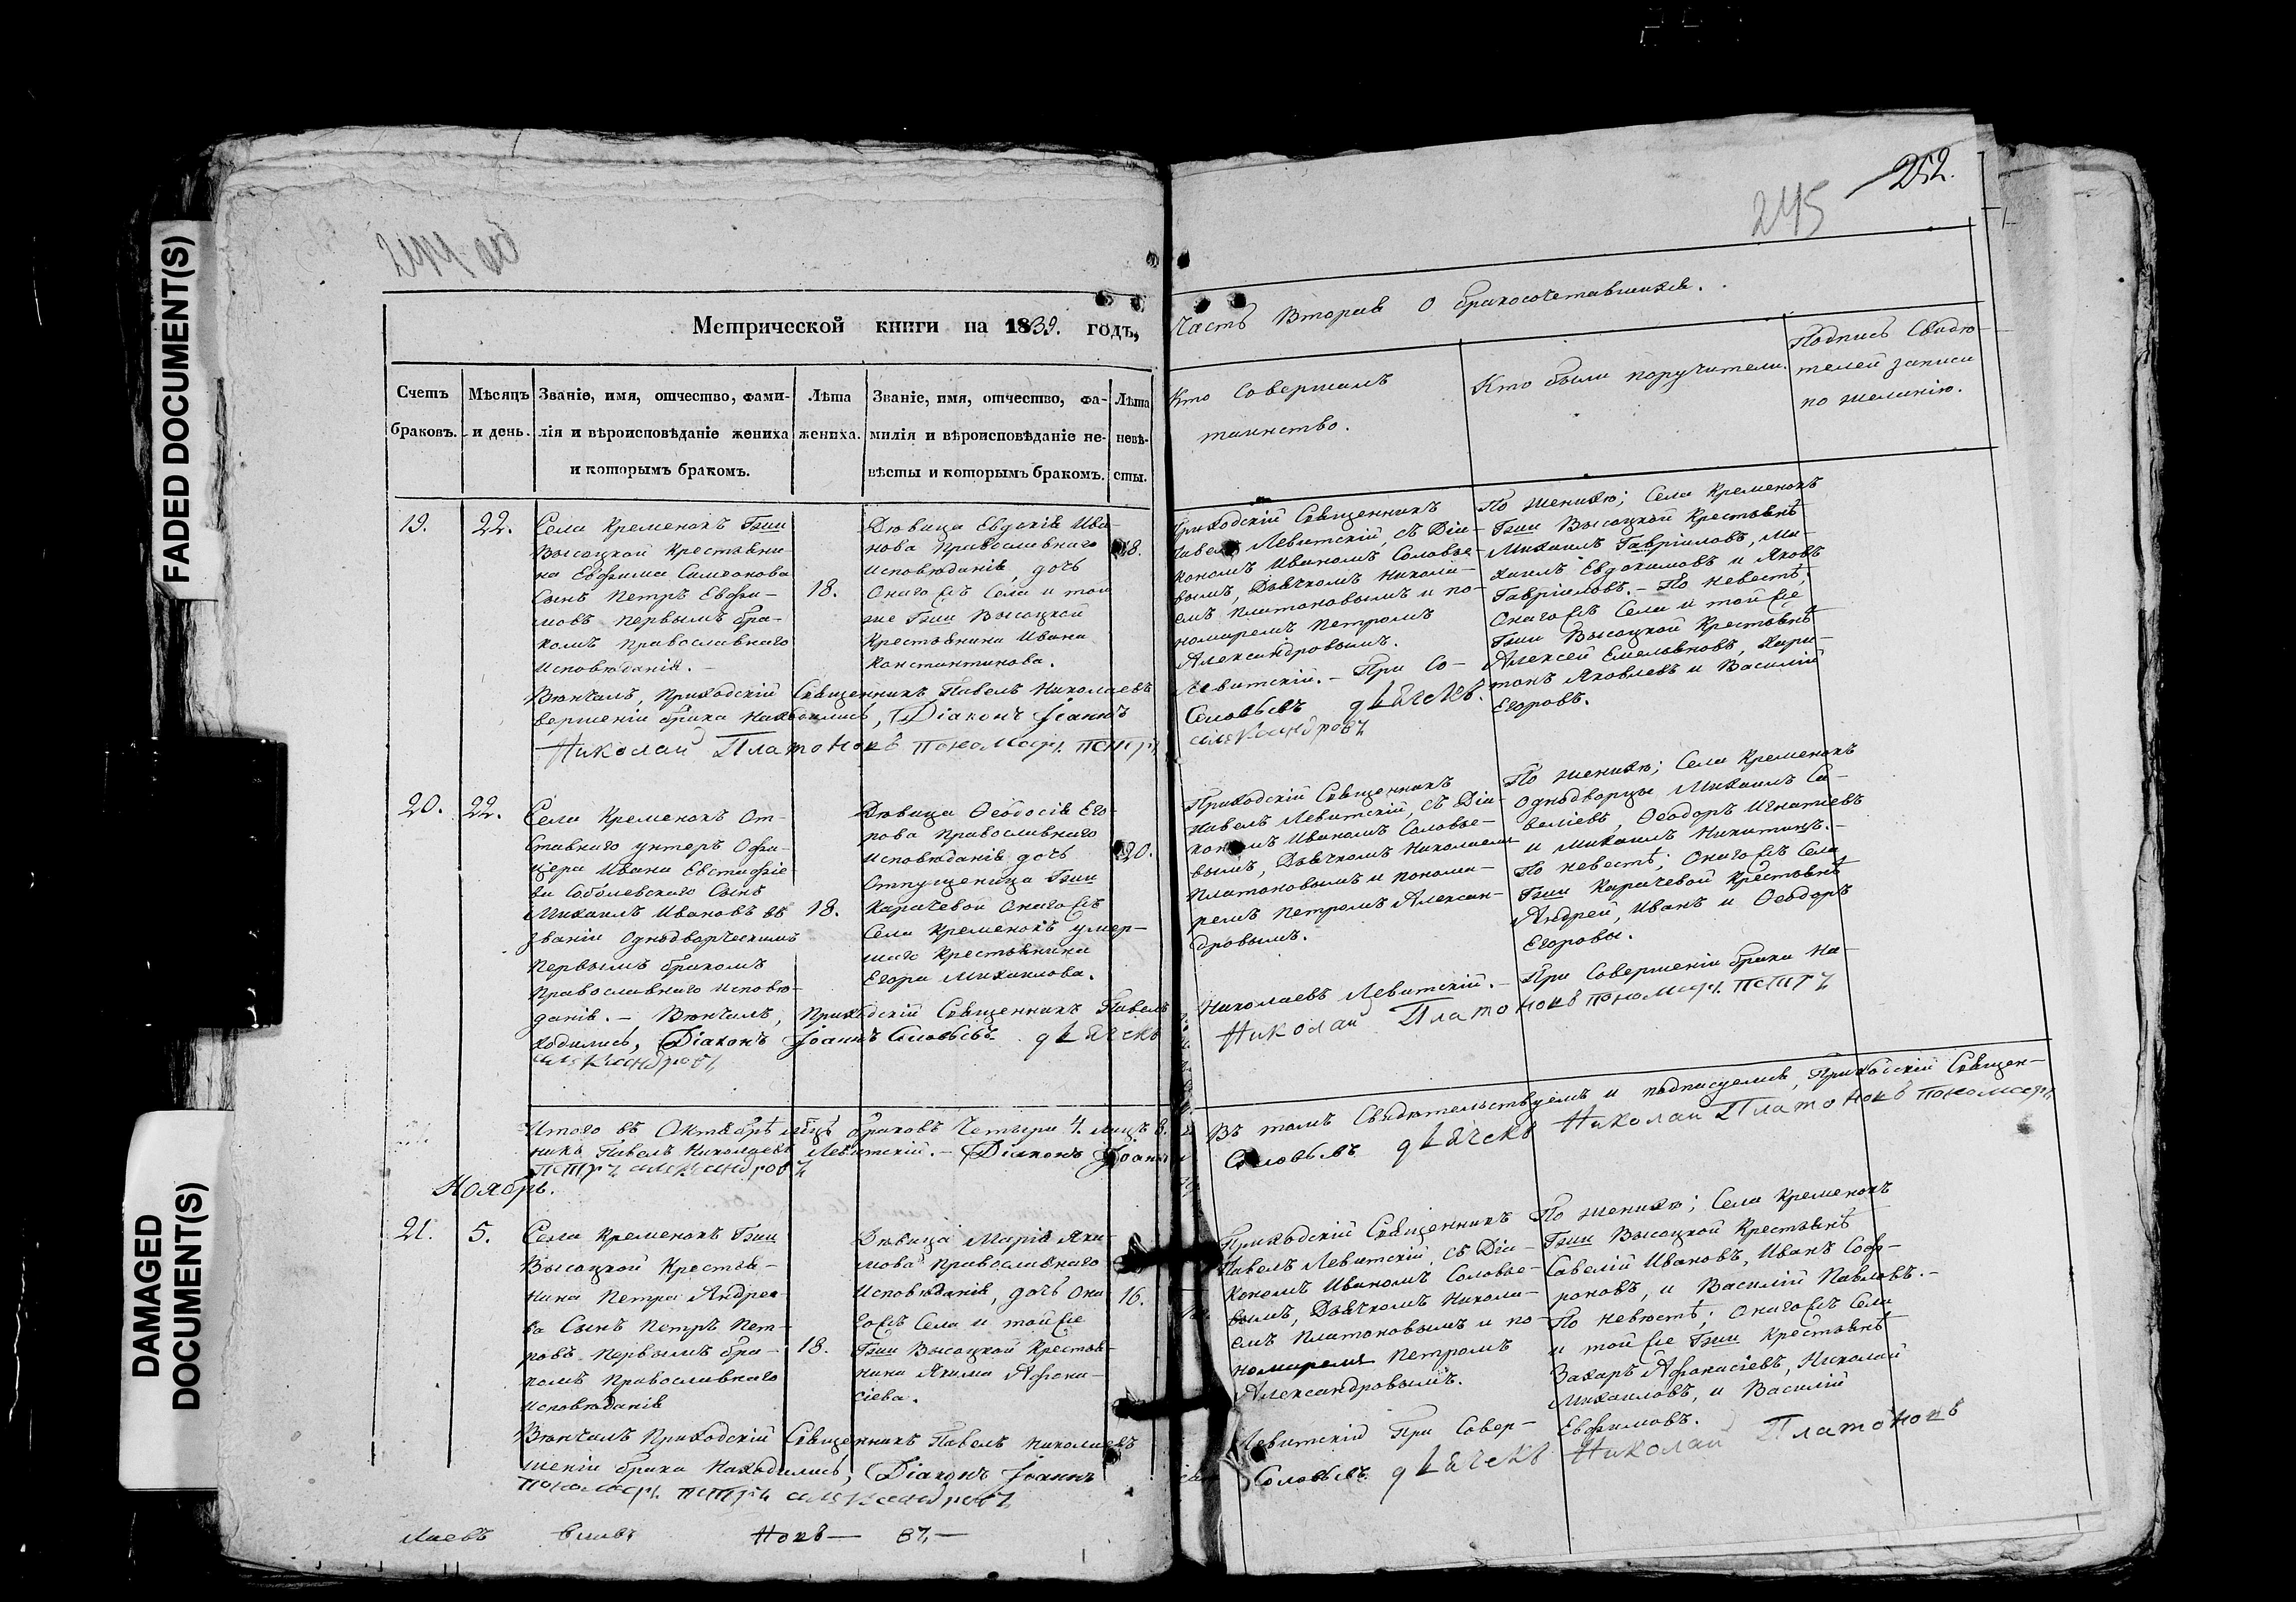 FADED DOCUMENT(S)
DAMAGED DOCUMENT(S)
252.
245
244 об
Метрической книги на 1839. годъ,
Часть Вторая О бракосочетавшихся.
Счетъ браковъ.
Мѣсяцъ и день.
Званіе, имя, отчество, фами-
лія и вѣроисповѣданіе жениха
и которымъ бракомъ.
Лѣта
жениха.
Званіе, имя, отчество, фа-
милія и вѣроисповѣданіе не-
вѣсты и которымъ бракомъ.
Лѣта
невѣ-
сты.
Кто Совершалъ
таинство.
Кто были поручители.
Подпись Свидѣ-
телей записи
по желанію.
19.
22.
Села Кременокъ Гжи
Высоцкой Крестьяни-
на Евфима Симеонова
Сынъ Петръ Евфи-
мовъ первымъ бра-
комъ православнаго
исповѣданія.
18.
Дѣвица Евдокія Ива
нова православнаго
исповѣданія, дочь
Онаго жъ Села и той
же Гжи Высоцкой
Крестьянина Ивана
Константинова.
18.
Приходскій Священникъ
Павелъ Левитскій, съ Діа-
кономъ Иваномъ Соловье-
вымъ, Дьячкомъ Никола-
емъ Платоновымъ и по-
номаремъ Петромъ
Александровымъ.
По женихѣ; Села Кременокъ
Гжи Высоцкой Крестьянѣ
Михаилъ Гавріиловъ, Ми-
хаилъ Евдокимовъ и Яковъ
Гавріиловъ. - По невестѣ;
Онаго жъ Села и той же
Гжи Высоцкой Крестьянѣ
Алексей Емельяновъ, Хари-
тонъ Яковлевъ и Василій
Егоровъ.
Вѣнчалъ, Приходскій Священникъ Павелъ Николаевъ Левитскій. - При Со-
вершеніи брака находились, Діаконъ Іоаннъ Соловьевъ дьячекъ
Николай Платоновъ пономарь петръ александровъ
20.
22.
Села Кременокъ От-
ставнаго унтеръ Офи-
цера Ивана Евстафіе
ва Соболевскаго Сынъ
Михаилъ Ивановъ въ
званіи Однодворческомъ
первымъ бракомъ
православнаго исповѣ-
данія. -
18.
Дѣвица Ѳеодосія Его-
рова православнаго
исповѣданія дочь
Отпущеница Гжи
Карачевой Онаго жъ
Села Кременокъ умер-
шаго Крестьянина
Егора Михаилова.
20.
Приходскій Священникъ
Павелъ Левитскій, съ Діа-
кономъ Иваномъ Соловье-
вымъ, Дьячкомъ Николаемъ
Платоновымъ и понома-
ремъ Петромъ Алексан-
дровымъ.
По женихѣ; Села Кременокъ
Однодворцы Михаилъ Са-
веліевъ, Ѳеодоръ Игнатіевъ
и Михаилъ Никитинъ. -
По невестѣ; Онаго жъ Села
Гжи Карачевой Крестьянѣ
Андрей, Иванъ и Ѳеодоръ
Егоровы.
Вѣнчалъ, Приходскій Священникъ Павелъ Николаевъ Левитскій. - При Совершеніи брака на-
ходились, Діаконъ Іоаннъ Соловьевъ дьячекъ Николай Платоновъ пономарь петръ
александровъ
Итого въ Октябрѣ мѣсцѣ браковъ Четыри 4. лицъ 8. Въ томъ Свидѣтельствуемъ и подписуемся, Приходскій Священ-
никъ Павелъ Николаевъ Левитскій. - Діаконъ Іоаннъ Соловьевъ дьячекъ Николай Платоновъ пономарь
петръ александровъ
Ноябрь.
21.
5.
Села Кременокъ Гжи
Высоцкой Крестья-
нина Петра Андрее-
ва Сынъ Петръ Пет-
ровъ первымъ бра-
комъ православнаго
исповѣданія
18.
Дѣвица Марія Яки-
мова православнаго
исповѣданія, дочь Она
го жъ Села и той же
Гжи Высоцкой Крестья-
нина Якима Афона-
сіева.
16.
Приходскій Священникъ
Павелъ Левитскій, съ Діа-
кономъ Иваномъ Соловье-
вымъ, Дьячкомъ Никола-
емъ Платоновымъ и по-
номаремъ Петромъ
Александровымъ.
По женихѣ; Села Кременокъ
Гжи Высоцкой Крестьянѣ
Савелій Ивановъ, Иванъ Соф-
роновъ, и Василій Павловъ. -
По невѣстѣ; Онаго жъ Села
и той же Гжи Крестьянѣ
Захаръ Афонасіевъ, Николай
Михаиловъ, и Василій
Евфимовъ.
Вѣнчалъ Приходскій Священникъ Павелъ Николаевъ Левитскій При Совер-
шеніи брака находились, Діаконъ Іоаннъ Соловьевъ дьячекъ Николай Платоновъ
пономарь петръ александровъ